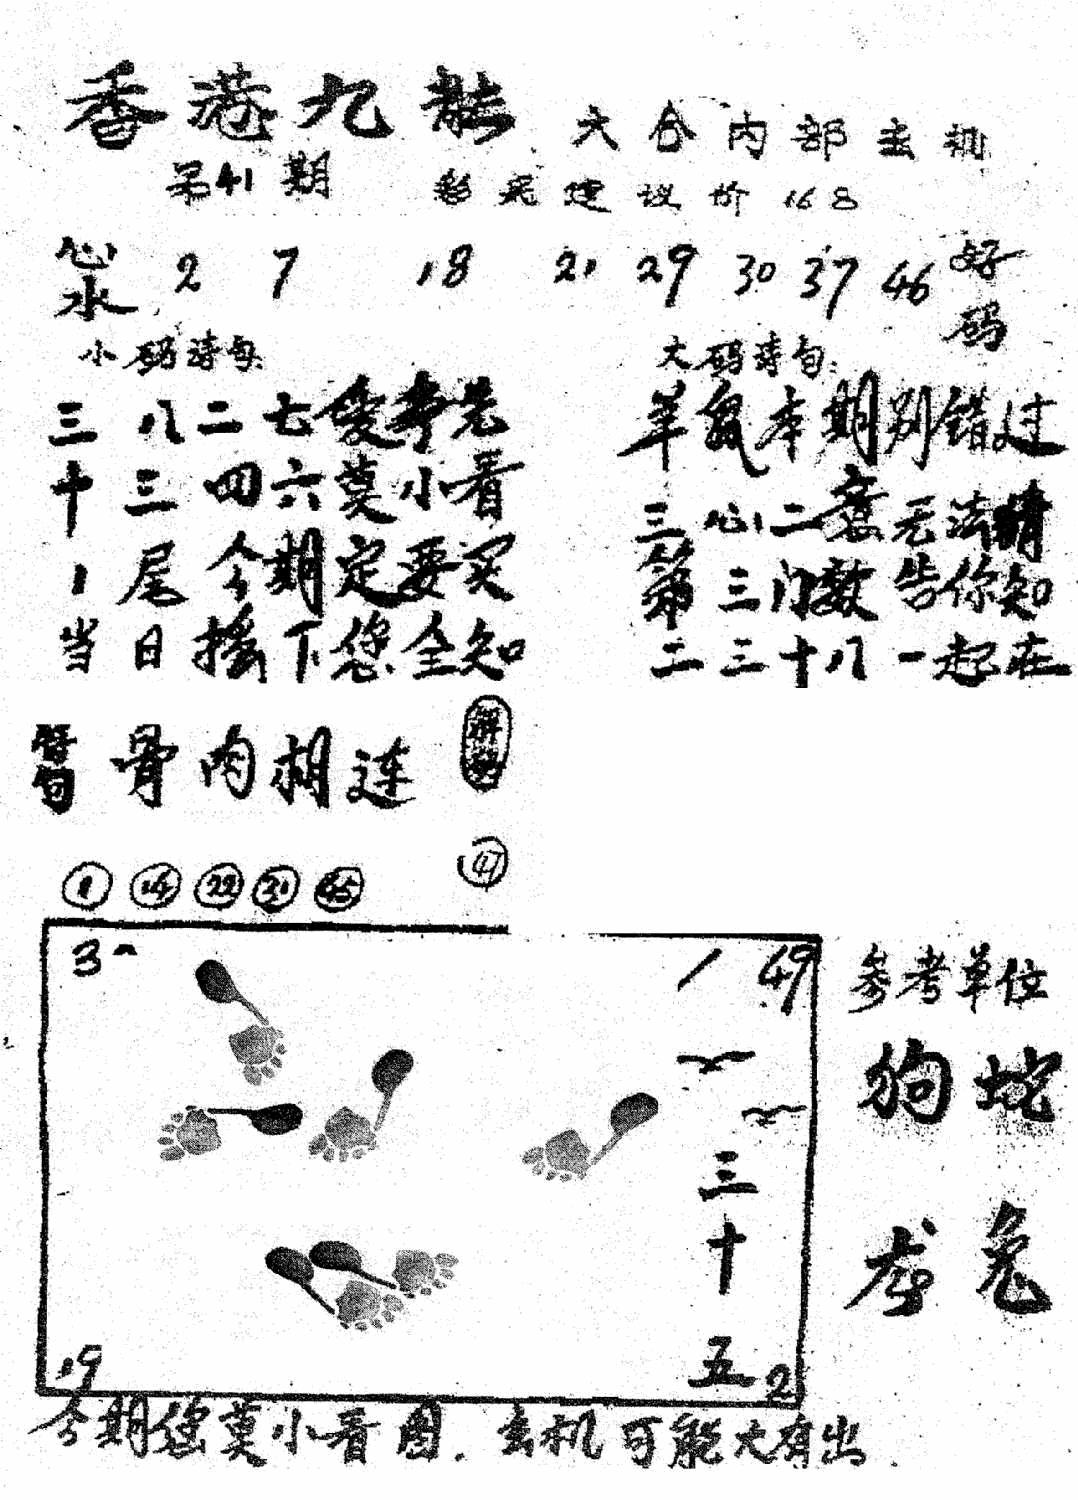 香港九龍
六合内部玄机
第41期
彩民建议价168
心水 2 7 18 21 29 30 37 46 好码
小码诗句:
大码诗句:
三八二七爱争先
十三四六莫小看
1尾今期定要买
当日搖下您全知
羊鼠本期别错过
三心二意无法猜
第三门数告你知
二三十八一起在
骨肉相连
解码
8 14 22 31 45
47
3
1 49
三十五
19
2
参考单位
狗蛇
龙兔
今期您莫小看图.玄机可能大有出.